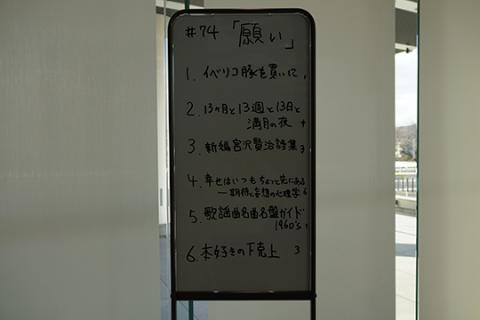 #74「願い」
1. イベリコ豚を買いに 1
2. 13ヶ月と13週と13日と
満月の夜 4
3. 新編宮沢賢治詩集 3
4. 幸せはいつもちょっと先にある
―期待と妄想の心理学 6
5. 歌謡曲名曲名盤ガイド
1960's 1
6. 本好きの下剋上 3